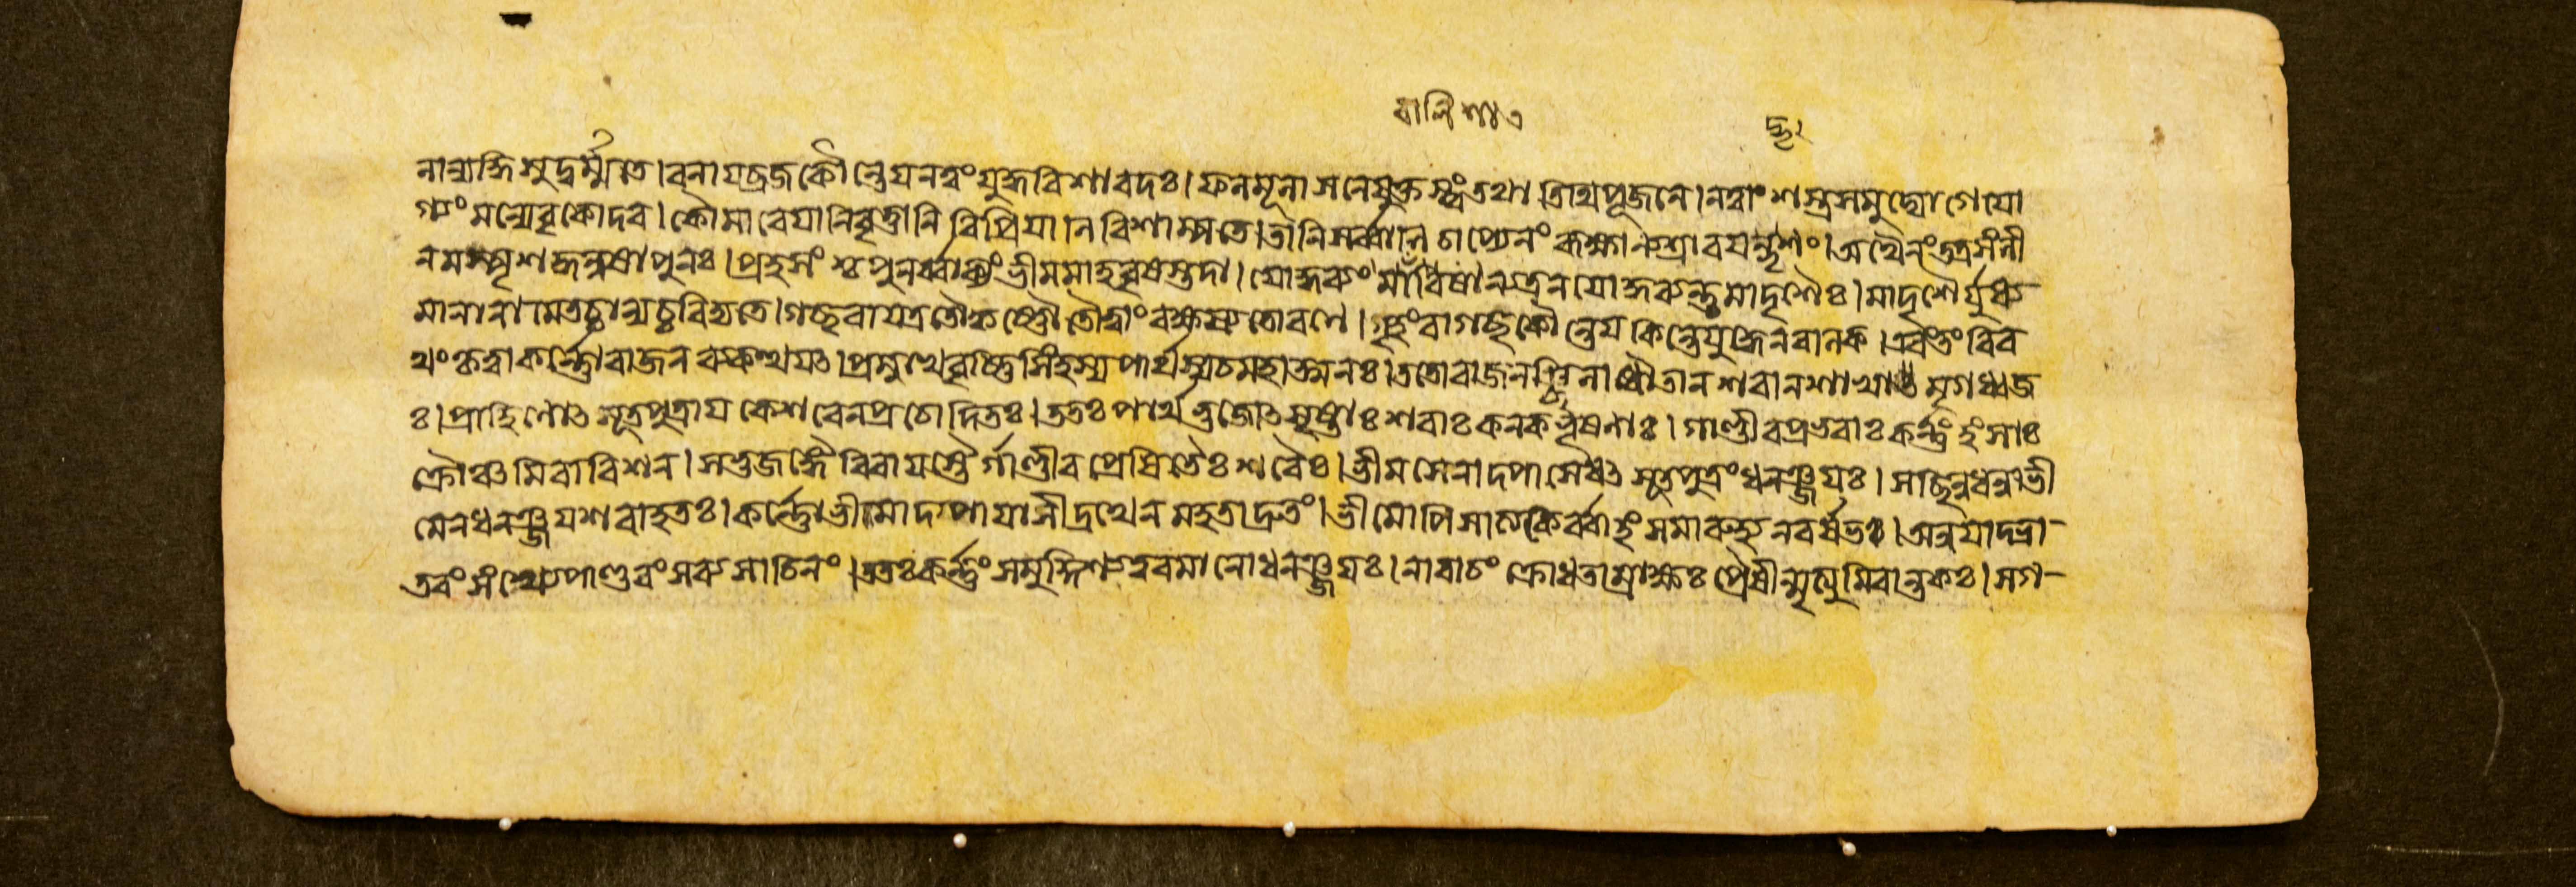 বালিশাঃ
নান্যদ্ধি সুদুর্ম্মতে । বনায ব্রজ কৌন্তেয ন ত্বং যুদ্ধবিশারদঃ । ফলমূলাশনে যুক্তস্ত্বং তথাতিথিপূজনে । ন ত্বাং শস্ত্রসমুদ্যোগে যো
গ্যং মন্যে বৃকোদর । কৌমারে যানি বৃত্তানি বিপ্রিযাণি বিশাম্পতে । তানি সর্ব্বাণি চাপ্যেনং রূক্ষাণ্যশ্রাবযদ্ভৃশং । অথৈনং তত্র সংলী
নমস্পৃশদ্ধনুষা পুনঃ । প্রহসংশ্চ পুনর্ব্বাক্যং ভীমমাহ বৃষস্তদা । যোদ্ধব্যং মারিষান্যত্র ন যোদ্ধব্যন্তু মাদৃশৈঃ । মাদৃশৈর্যুধ্য-
মানানামেতচ্চান্যচ্চ বিদ্যতে । গচ্ছ বা যত্র তৌ কৃষ্ণৌ তৌ ত্বাং রক্ষিষ্যতো রণে । গৃহং বা গচ্ছ কৌন্তেয কিন্তে যুদ্ধেন বালক । এবং তং বির
থং কৃত্বা কর্ণ্ণো রাজন ব্যকত্থযৎ । প্রমুখে বৃষ্ণিসিংহস্য পার্থস্য চ মহাত্মনঃ । ততো রাজন শিলাধৌতান শরান শাখামৃগধ্বজ
ঃ । প্রাহিণোৎ সূতপুত্রায কেশবেন প্রচোদিতঃ । ততঃ পার্থভুজোৎসৃষ্টাঃ শরাঃ কনকভূষণাঃ । গাণ্ডীবপ্রভবাঃ কর্ণ্ণং হংসাঃ
ক্রৌঞ্চমিবাবিশন । স ভুজঙ্গৈরিবাযস্তৈর্গাণ্ডীবপ্রেষিতৈঃ শরৈঃ । ভীমসেনাদপাসেধৎ সূতপুত্রং ধনঞ্জযঃ । স ছিন্নধন্বা ভী
মেন ধনঞ্জযশরাহতঃ । কর্ণ্ণো ভীমাদপাযাসীদ্রথেন মহতা দ্রুতং । ভীমোপি সাত্যকের্ব্বাহং সমারুহ্য নরর্ষভঃ । অন্বযাদ্ভ্রা-
তরং সংখ্যে পাণ্ডবং সব্যসাচিনং । ততঃ কর্ণ্ণং সমুদ্দিশ্য ত্বরমাণো ধনঞ্জযঃ । নারাচং ক্রোধতাম্রাক্ষঃ প্রৈষীন্মৃত্যুমিবান্তকঃ । স গ-